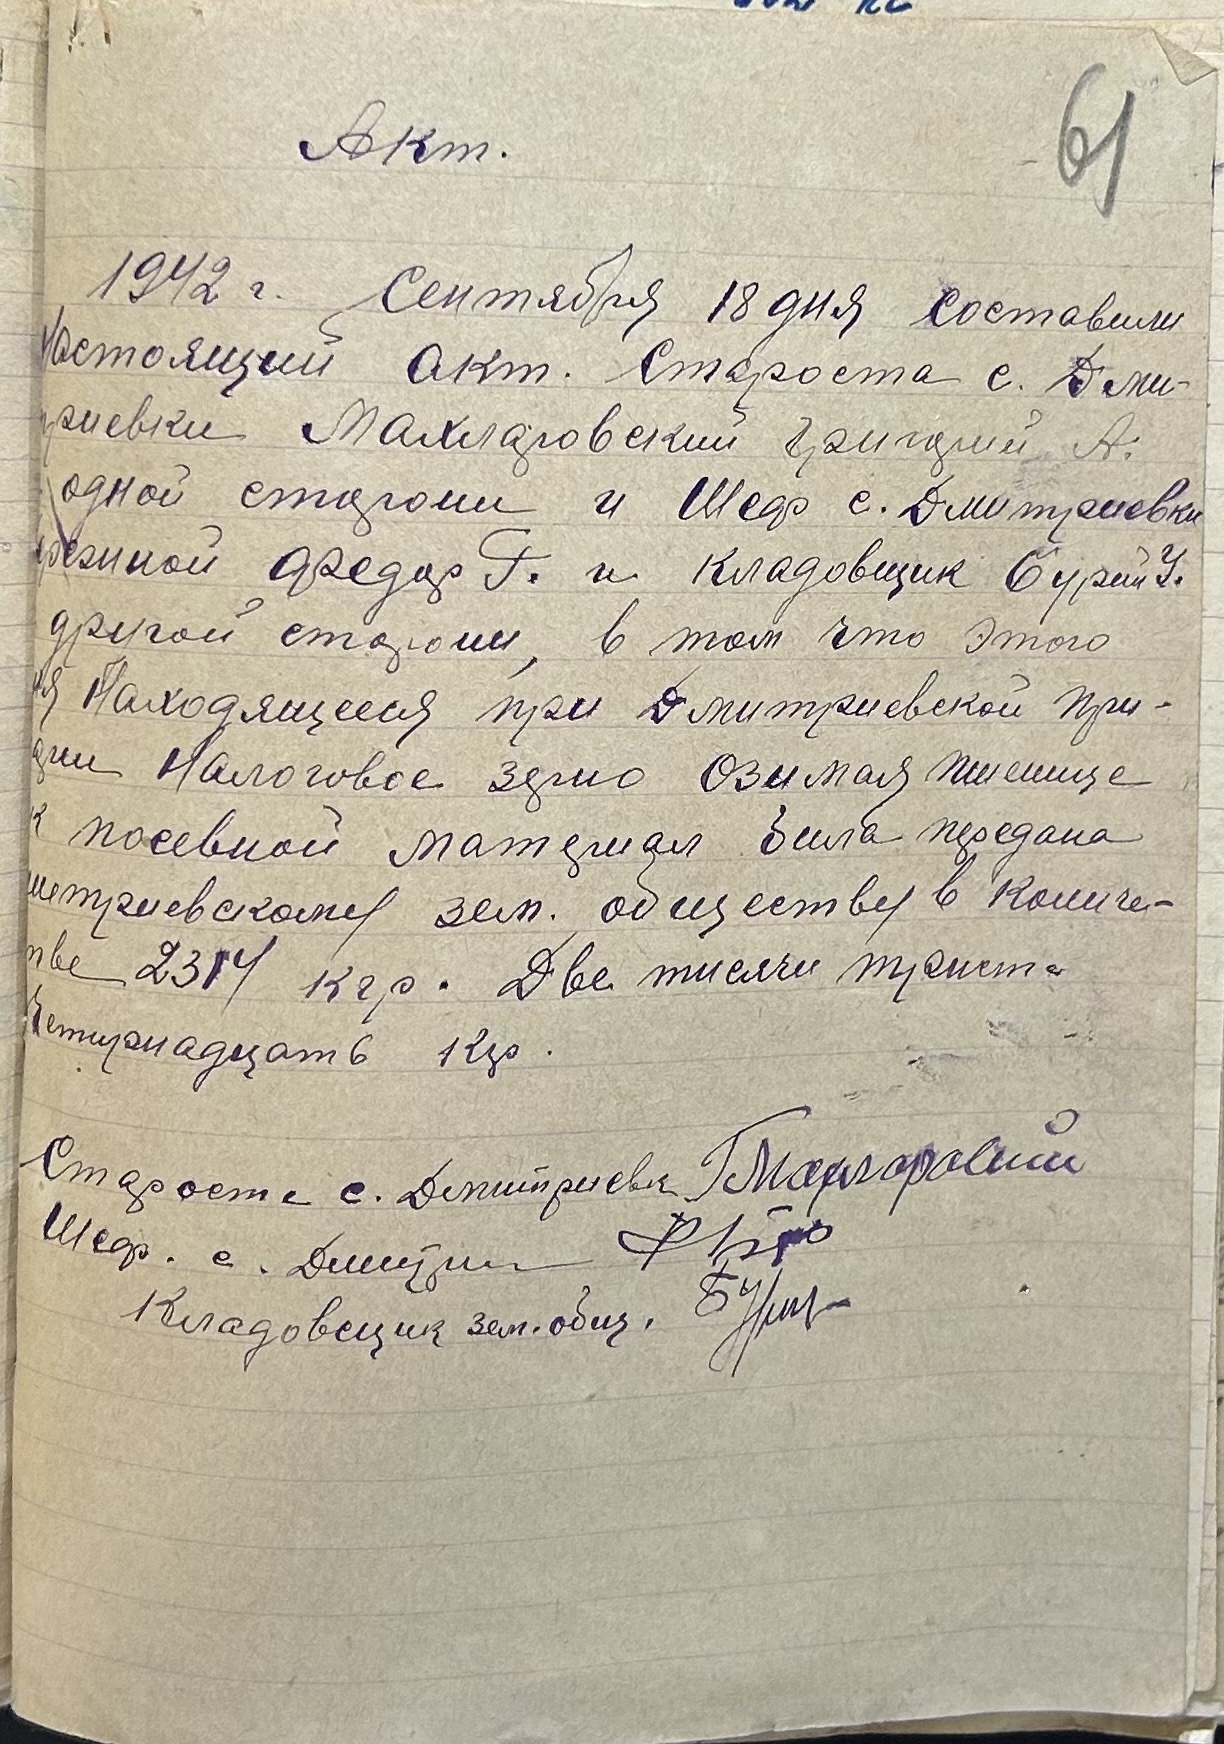 61
Акт.
1942 г. Сентября 18 дня составили
Настоящий акт. Староста с. Дми-
триевки Махларовский Григорий А.
одной сторони и Шеф с. Дмитриевки
Федор Г. и кладовщик Бурый У.
другой сторони, в том что этого
ня Находящееся при Дмитриевской При-
Налоговое зерно Озимая пшенице
к посевной материал била передана
митриевскому зем. обществу в количе-
тве 2314 кгр. Две тисячи триста
четирнадцать кгр.
Староста с. Дмитриевк ГМахларовский
Шеф. с. Дмитри
Кладовщик зем. общ. Бурый